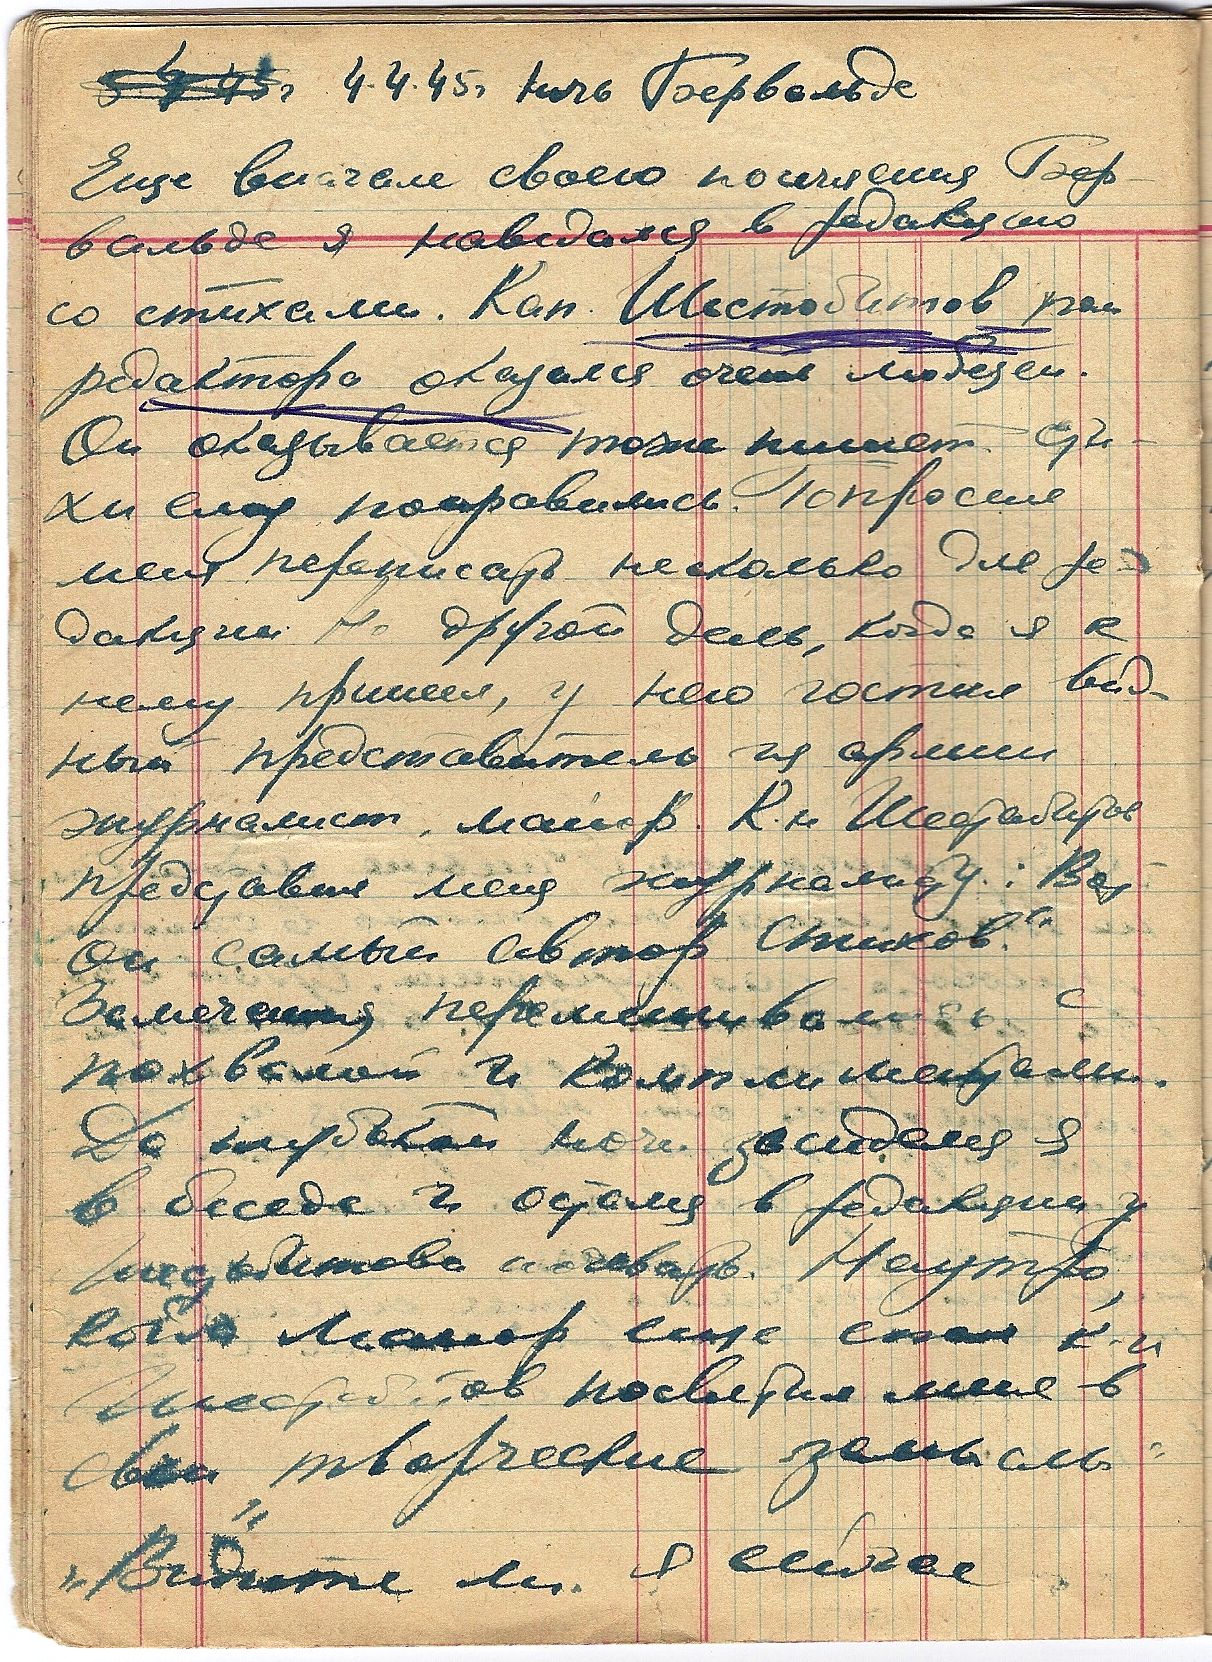 4.4.45г ночь Бервальде
Еще вначале своего посещения Бер-
вальде я наведался в редакцию
со стихами. Кап. Шестобитов
редактора оказался очень любезен.
Он оказывается тоже пишет. Сти-
хи ему понравились. Попросил
меня переписать несколько для ре-
дакции. На другой день, когда я к
нему пришел, у него гостил вид-
ный представитель из армии
журналист, майор. К-н Шестобитов
представил меня журналисту: Вот
Он самый автор стихов."
Замечания перемешивались с
похвалой и комплиментами.
До глубокой ночи засиделся я
в беседе и остался в редакции у
Шестобитова ночевать. Наутро,
когда майор еще спал к-н
Шестобитов посвятил меня в
свои творческие замыслы
"Видите ли. Я сейчас